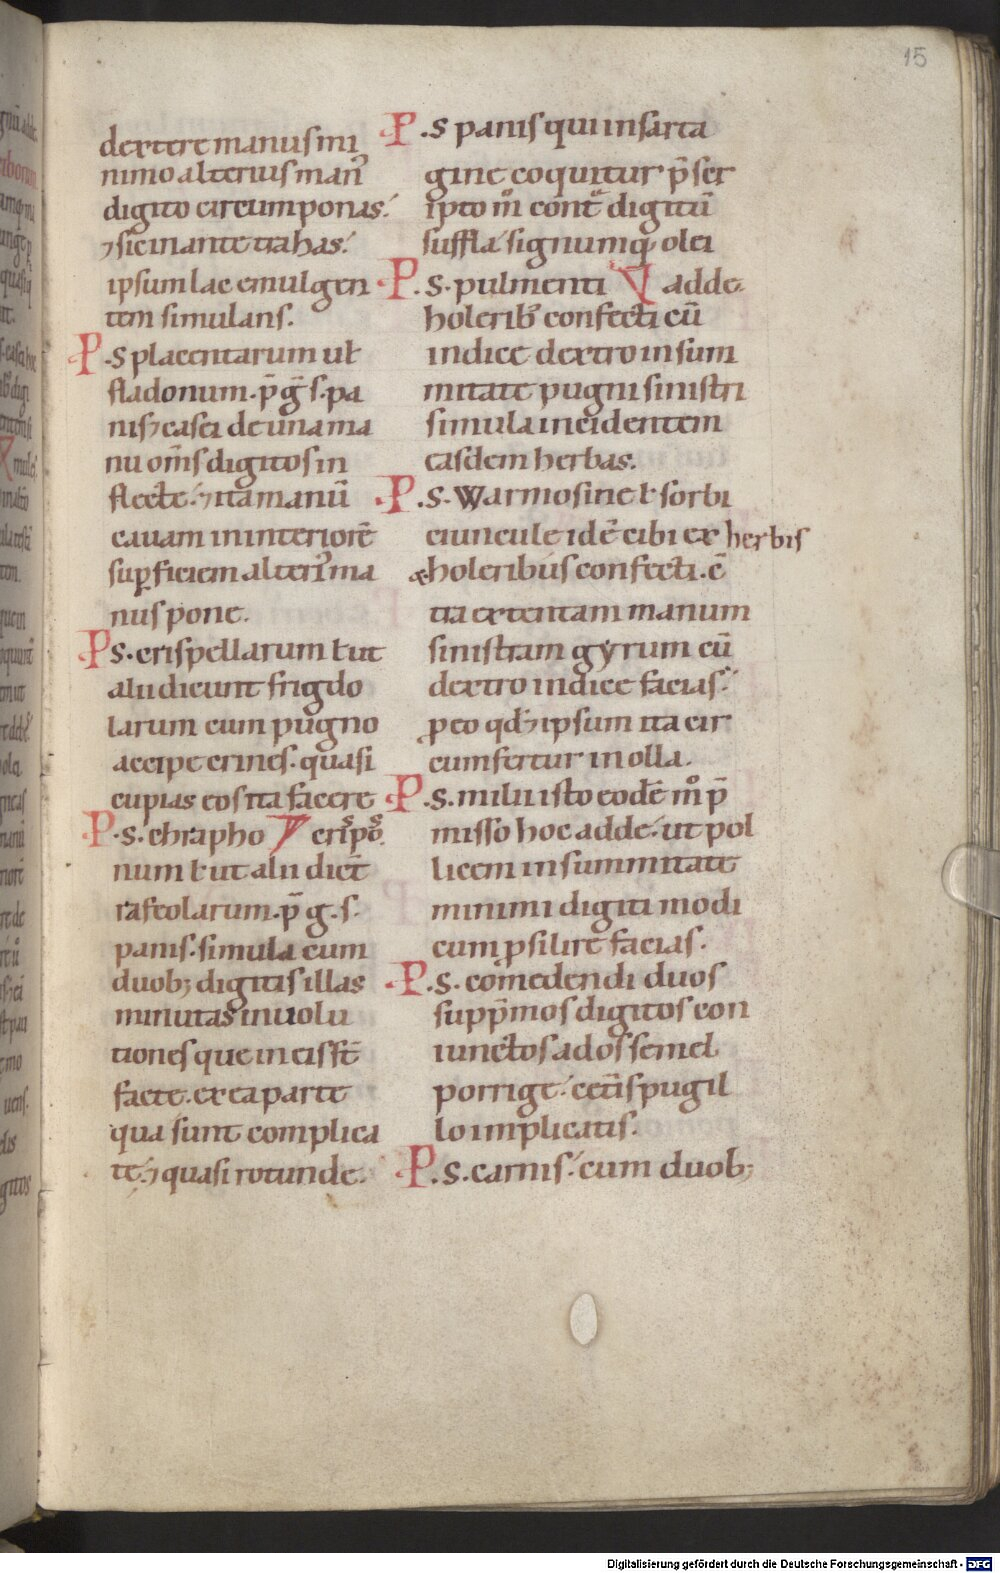 15
dextere manus mi
nimo alterius man᾿
digito circumponas.
⁊ sic in ante trahas.
ipsum lac emulgen
tem simulans.
P.S placentarum uł
fladonum. p̄ ḡ s. pa
nis ⁊ casei de una ma
nu om̄s digitos in
flecte. ⁊ ita manū
cauam in interiorē
suꝑficiem alteri᾿ ma
nus pone.
P S. crispellarum ł ut
alii dicunt frigdo
larum cum pugno
accipe crines. quasi
cupias eos ita facere
P.S. chrapho V
num ł ut alii dicт̄
rafeolarum. p̄ g. s.
panis. simula cum
duob; digitis illas
minutas inuolu
tiones que in eis st̄
facte. ex ea parte
qua sunt complica
te. ⁊ quasi rotunde.
P.S panis qui in sarta
gine coquitur p̄ scr
ipto m̊ digitū
suffla. signumq; olei
P.S. pulmenti V adde
holerib᾿ confecti cū
indice dextro in sum
mitate pugni sinistri
simula incidentem
easdem herbas.
P.S. warmosii ne ł sorbi
ciuncule id ē cibi ex herbis
& holeribus confecti. ē
tra extentam manum
sinistram gyrum cū
dextro indice facias.
ꝑeo qd̄ ⁊ ipsum ita cir
cumfertur in olla.
P.S. milii isto eodē m̊ p̄
misso hoc adde. ut pol
licem in summitate
minimi digiti modi
cum ꝓsilire facias.
P.S. comedendi duos
supp̄mos digitos con
iunctos ad os semel
porrige. cet̄is pugil
lo implicatis.
P.S. carnis. cum duob;
Digitalisierung gefördert durch die Deutsche Forschungsgemeinschaft - DFG